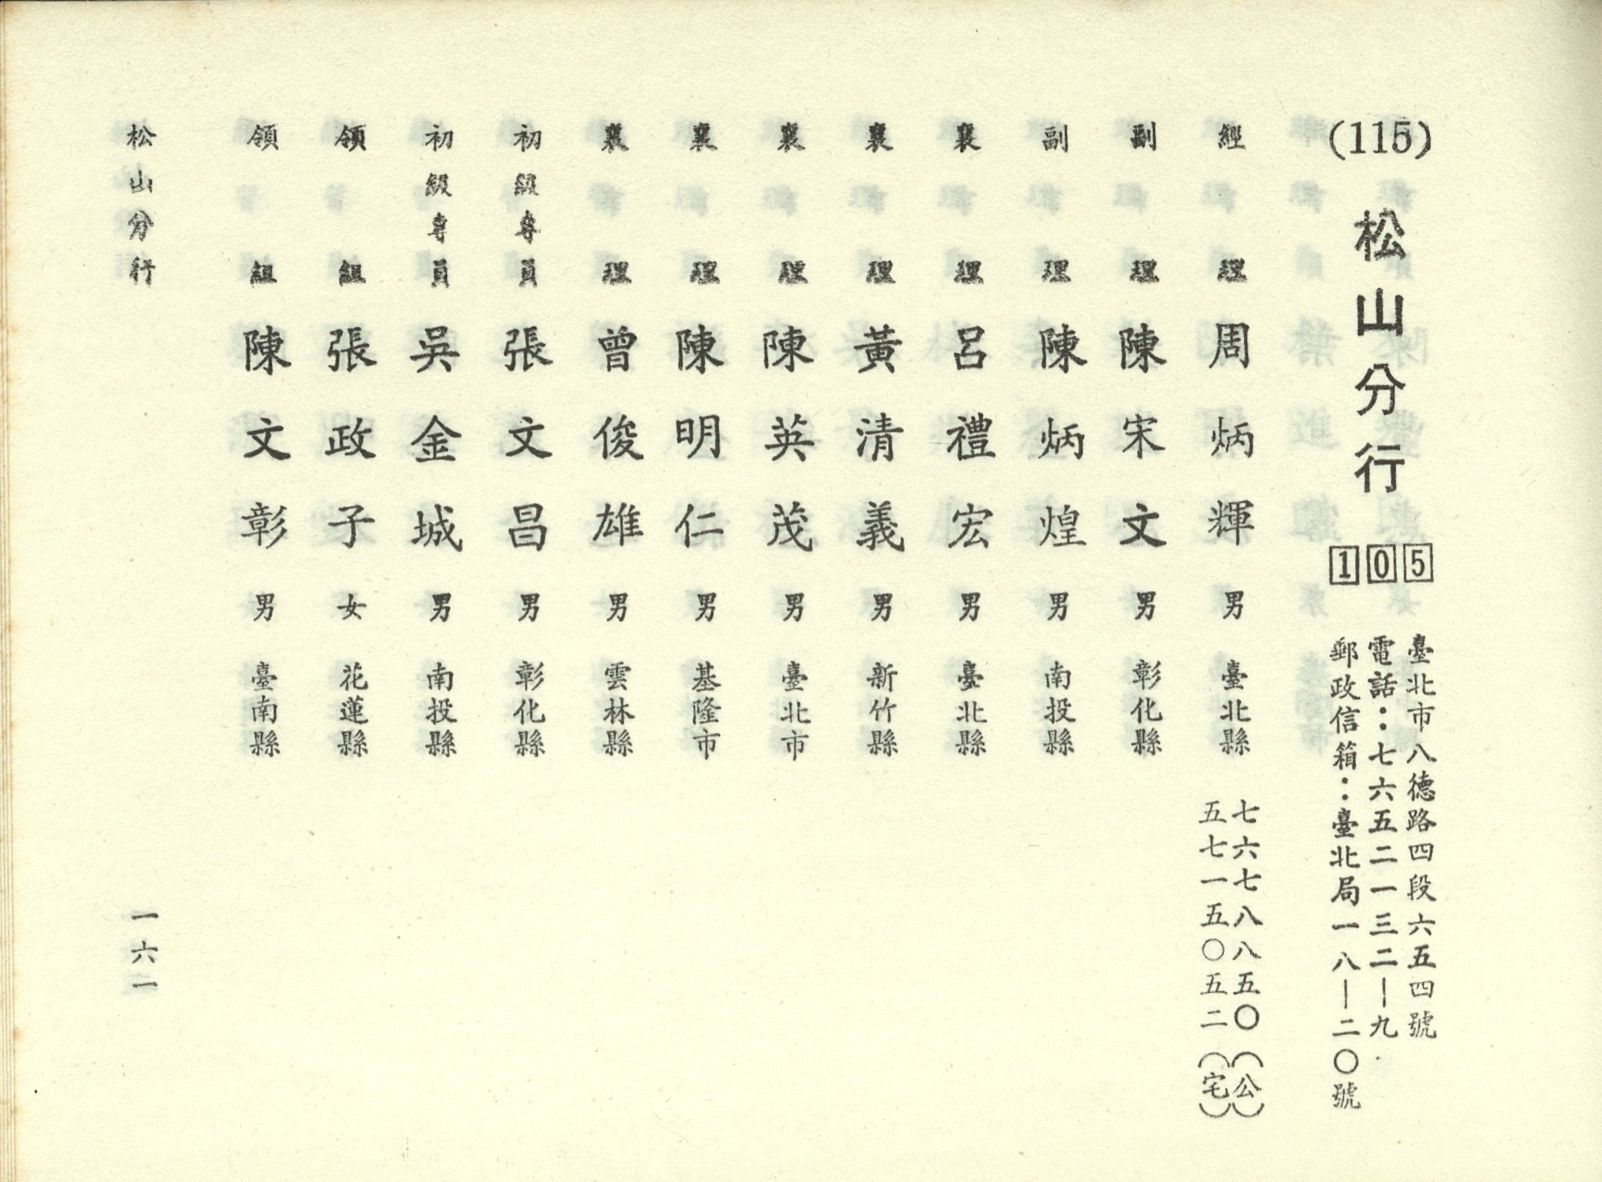 (115)
松山分行
105
臺北市八德路四段六五四號
電話：七六五二一三二—九
郵政信箱：臺北局一八—二〇號
經理 周炳輝 男 臺北縣
七六七八八五〇（公）
五七一五〇五二（宅）
副理 陳宋文 男 彰化縣
副理 陳炳煌 男 南投縣
襄理 呂禮宏 男 臺北縣
襄理 黃清義 男 新竹縣
襄理 陳英茂 男 臺北市
襄理 陳明仁 男 基隆市
襄理 曾俊雄 男 雲林縣
初級專員 張文昌 男 彰化縣
初級專員 吳金城 男 南投縣
領組 張政子 女 花蓮縣
領組 陳文彰 男 臺南縣
松山分行
一六一